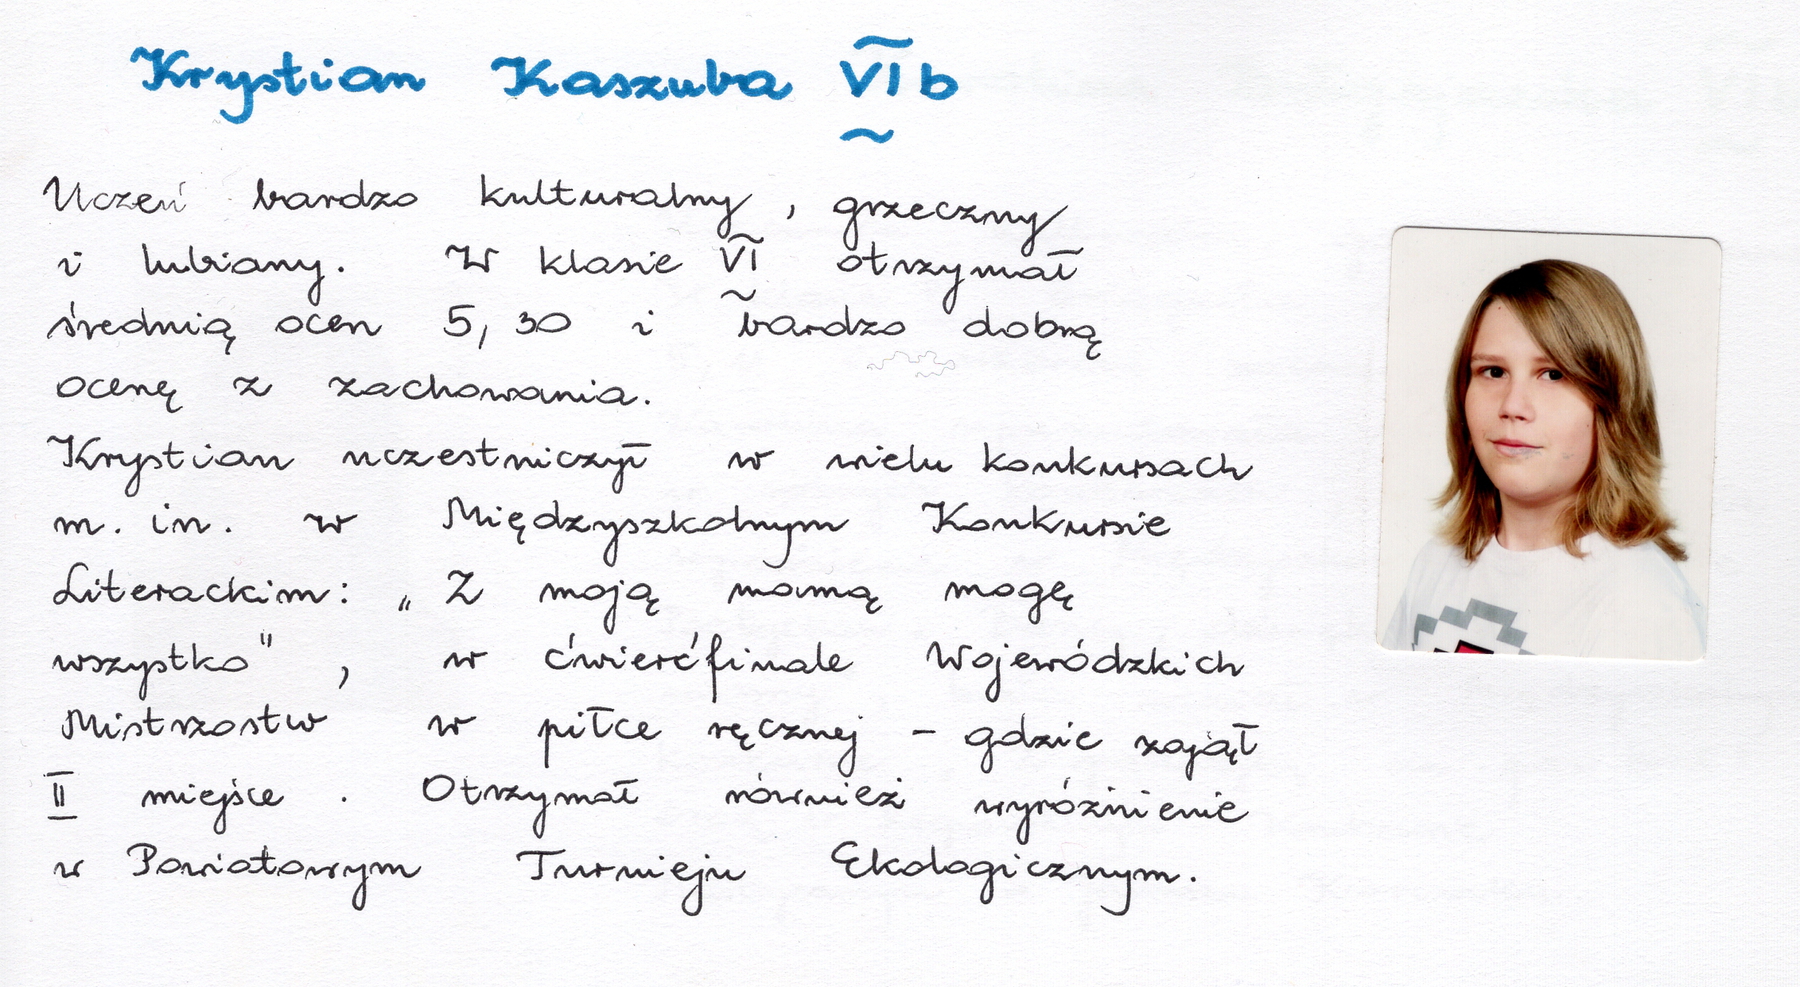 Krystian Kaszuba VI b
Uczeń bardzo kulturalny, grzeczny
i lubiany. W klasie VI otrzymał
średnią ocen 5,30 i bardzo dobrą
ocenę z zachowania.
Krystian uczestniczył w wielu konkursach
m. in. w Międzyszkolnym Konkursie
Literackim: „Z moją mamą mogę
wszystko", w ćwierćfinale Wojewódzkich
Mistrzostw w piłce ręcznej - gdzie zajął
II miejsce. Otrzymał również wyróżnienie
w Powiatowym Turnieju Ekologicznym.